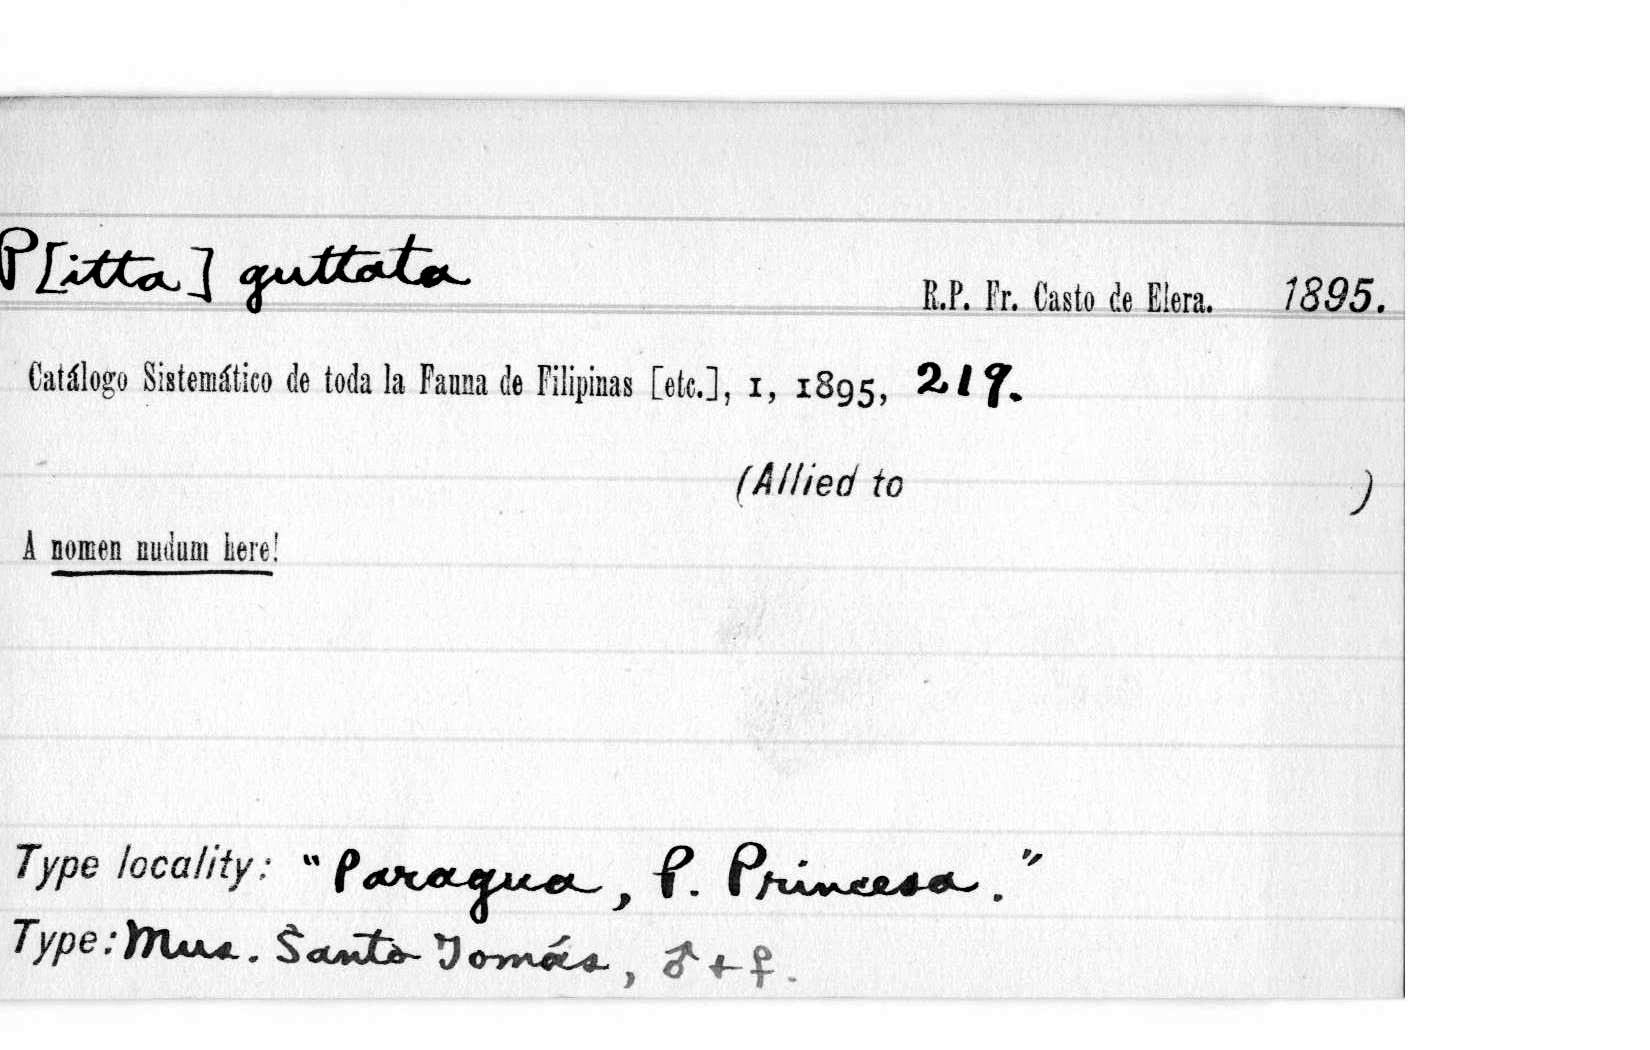 P[itta] guttata
R.P. Fr. Casto de Elera. 1895.
Catálogo Sistemático de toda la Fauna de Filipinas [etc.], 1, 1895, 219.
(Allied to )
A nomen nudum here!
Type locality: "Paragua, P. Princesa."
Type: Mus. Santo Tomás, ♂ + ♀.